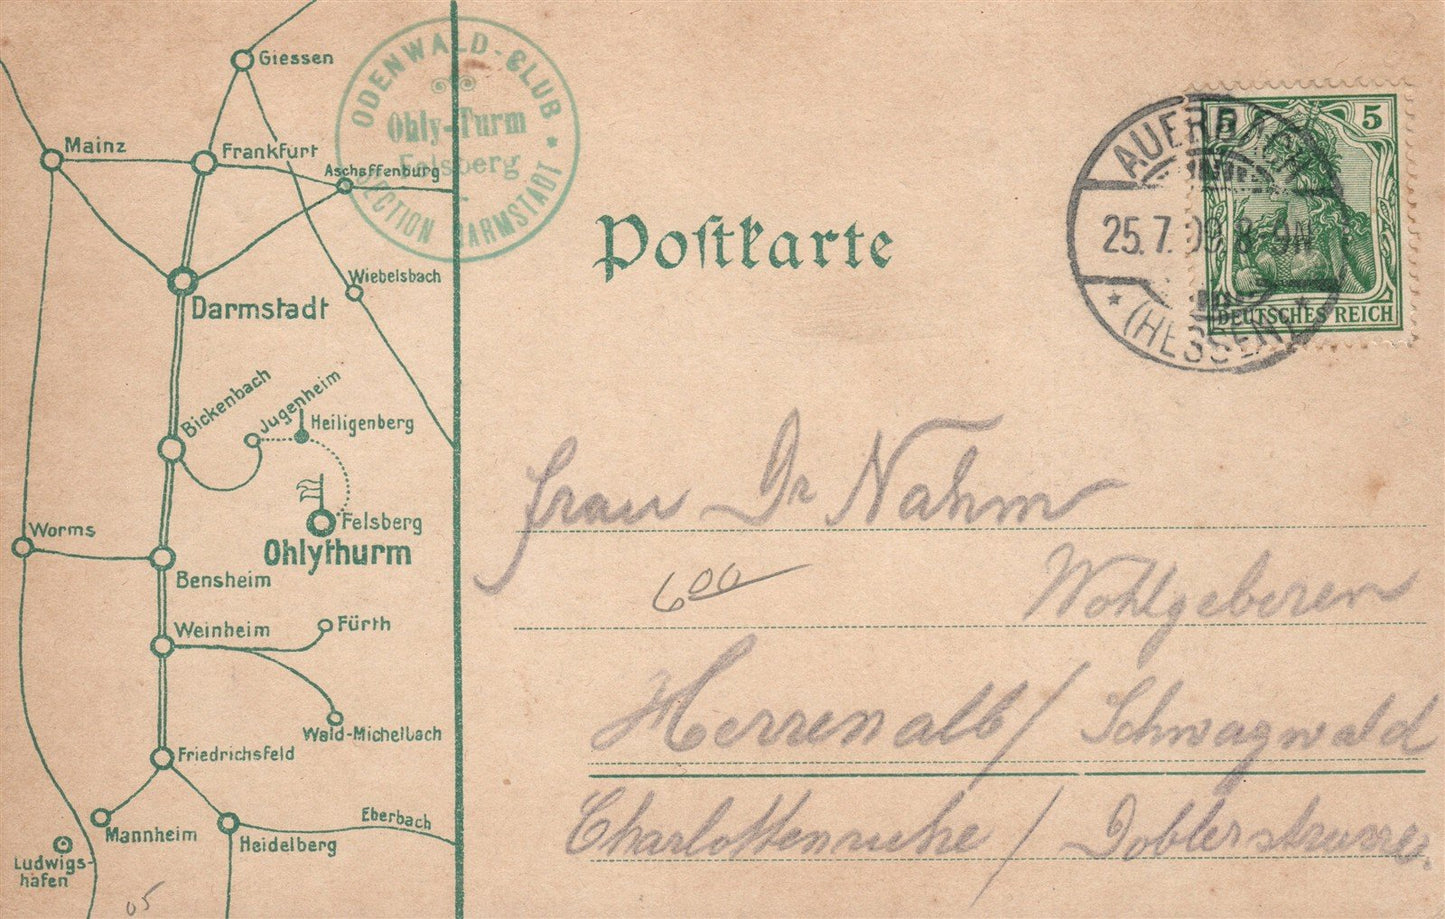 Giessen
Mainz
Frankfurt
Aschaffenburg
Wiebelsbach
Darmstadt
Bickenbach
Jugenheim
Heiligenberg
Felsberg
Ohlythurm
Worms
Bensheim
Weinheim
Fürth
Wald-Michelbach
Friedrichsfeld
Mannheim
Heidelberg
Eberbach
Ludwigs-
hafen
05
ODENWALD-CLUB
Ohly-Turm
Felsberg
SECTION DARMSTADT
Postkarte
AUERBACH
25.7.09. 8-9N
(HESSEN)
5 5
DEUTSCHES REICH
Frau Dr Nahm
600
Wohlgeboren
Herrenalb / Schwazwald
Charlottenruhe / Doblerstrasse.